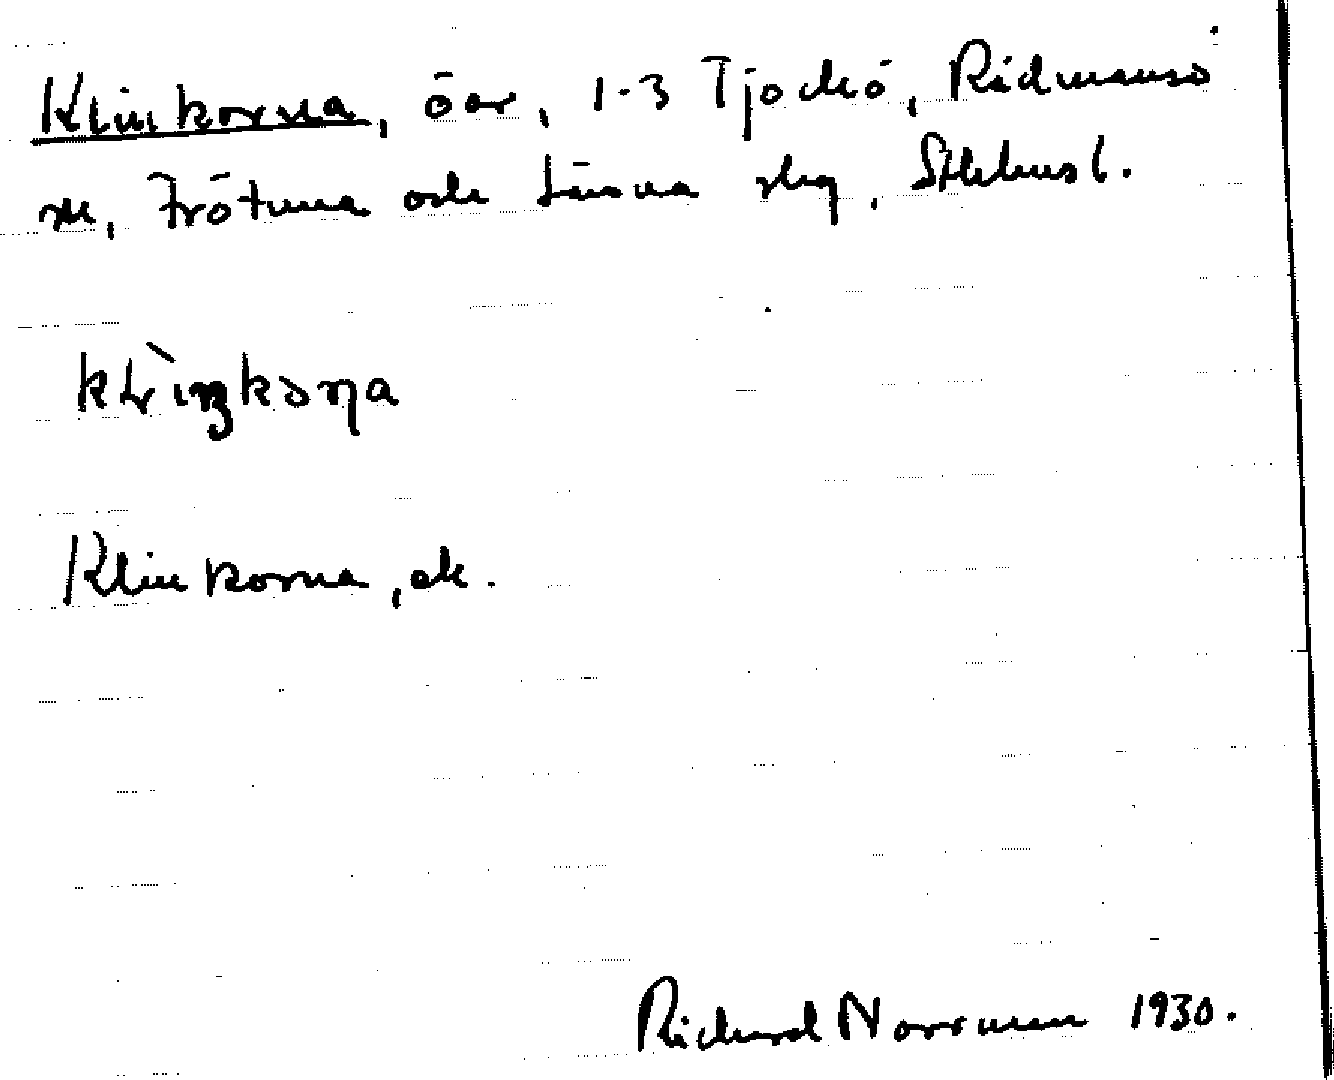 Klinkorna, öar, 1-3 Tjockö, Rådmansö
sn, Frötuna och Länna slg, Sthlms l.
Klinkorna, ek.
Richard Norrman 1930.